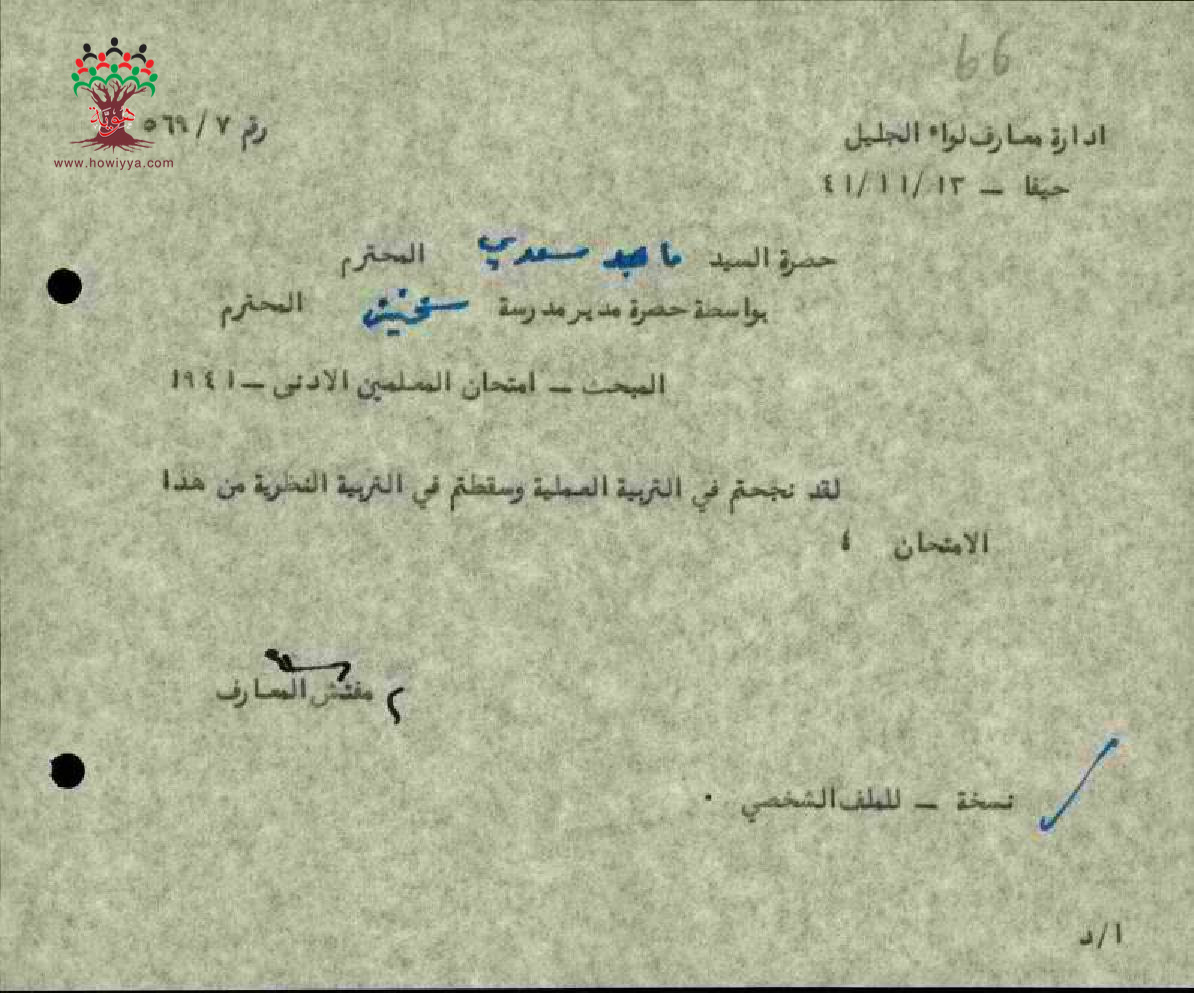 66
ادارة معارف لواء الجليل
رقم ٧ / ٥٦٩
حيفا – ١٣/١١/٤١
هوية
www.howiyya.com
حضرة السيد ماجد سعدي المحترم
بواسطة حضرة مدير مدرسة سخنين المحترم
المبحث – امتحان المعلمين الادنى – ١٩٤١
لقد نجحتم في التربية العملية وسقطتم في التربية النظرية من هذا
الامتحان ٤
مفتش المعارف
نسخة – للملف الشخصي ٠
ا/د